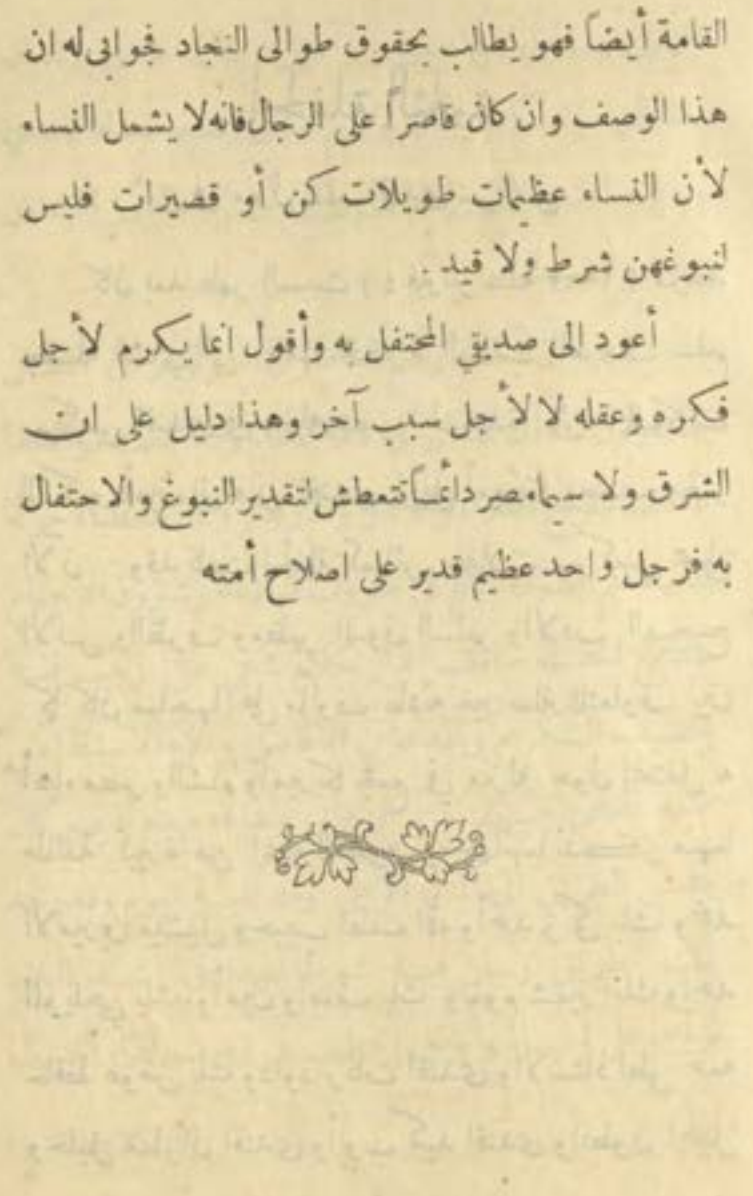 القامة أيضاً فهو يطالب بحقوق طوالى النجاد فجوابى له ان
هذا الوصف وان كان قاصراً على الرجال فانه لا يشمل النساء
لأن النساء عظيمات طويلات كن أو قصيرات فليس
لنبوغهن شرط ولا قيد .
أعود الى صديقي المحتفل به وأقول انما يكرم لأجل
فكره وعقله لا لأجل سبب آخر وهذا دليل على ان
الشرق ولا سيما مصر دائماً تتعطش لتقدير النبوغ والاحتفال
به فرجل واحد عظيم قدير على اصلاح أمته